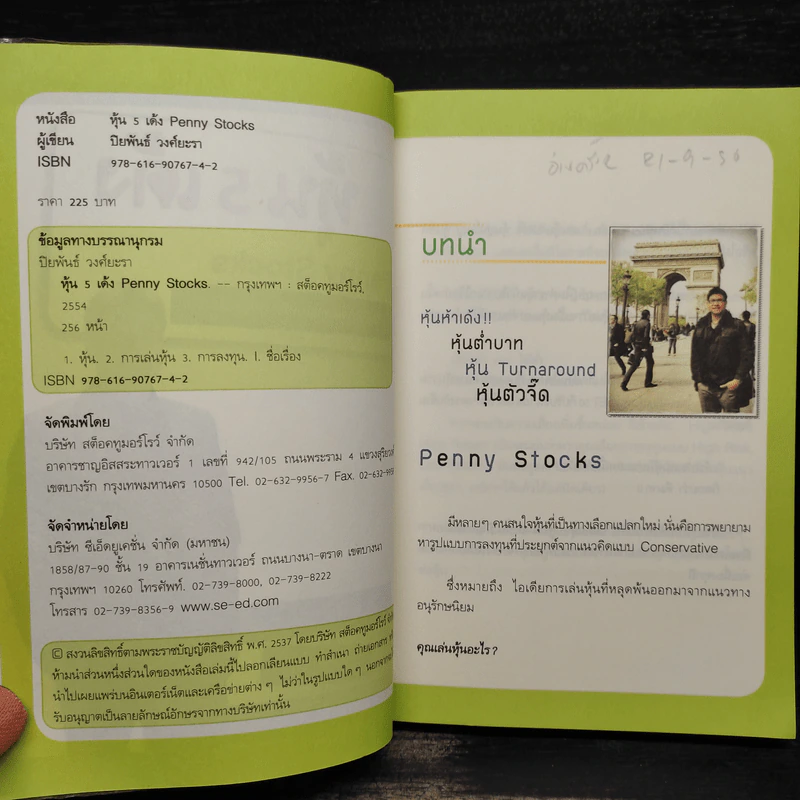 หนังสือ หุ้น 5 เด้ง Penny Stocks
ผู้เขียน ปิยพันธ์ วงศ์ยะรา
ISBN 978-616-90767-4-2
ราคา 225 บาท
ข้อมูลทางบรรณานุกรม
ปิยพันธ์ วงศ์ยะรา
หุ้น 5 เด้ง Penny Stocks. -- กรุงเทพฯ : สต็อคทูมอร์โรว์,
2554
256 หน้า
1. หุ้น. 2. การเล่นหุ้น 3. การลงทุน. I. ชื่อเรื่อง
ISBN 978-616-90767-4-2
จัดพิมพ์โดย
บริษัท สต็อคทูมอร์โรว์ จำกัด
อาคารชาญอิสสระทาวเวอร์ 1 เลขที่ 942/105 ถนนพระราม 4 แขวงสุริยวงศ์
เขตบางรัก กรุงเทพมหานคร 10500 Tel. 02-632-9956-7 Fax. 02-632-
จัดจำหน่ายโดย
บริษัท ซีเอ็ดยูเคชั่น จำกัด (มหาชน)
1858/87-90 ชั้น 19 อาคารเนชั่นทาวเวอร์ ถนนบางนา-ตราด เขตบางนา
กรุงเทพฯ 10260 โทรศัพท์. 02-739-8000, 02-739-8222
โทรสาร 02-739-8356-9 www.se-ed.com
© สงวนลิขสิทธิ์ตามพระราชบัญญัติลิขสิทธิ์ พ.ศ. 2537 โดยบริษัท สต็อคทูมอร์โรว์
ห้ามนำส่วนหนึ่งส่วนใดของหนังสือเล่มนี้ไปลอกเลียนแบบ ทำสำเนา ถ่ายเอกสาร
นำไปเผยแพร่บนอินเตอร์เน็ตและเครือข่ายต่าง ๆ ไม่ว่าในรูปแบบใด ๆ
รับอนุญาตเป็นลายลักษณ์อักษรจากทางบริษัทเท่านั้น
บทนำ
หุ้นห้าเด้ง!!
หุ้นต่ำบาท
หุ้น Turnaround
หุ้นตัวจิ๊ด
Penny Stocks
มีหลายๆ คนสนใจหุ้นที่เป็นทางเลือกแปลกใหม่ นั่นคือการพยายาม
หารูปแบบการลงทุนที่ประยุกต์จากแนวคิดแบบ Conservative
ซึ่งหมายถึง ไอเดียการเล่นหุ้นที่หลุดพ้นออกมาจากแนวทาง
อนุรักษนิยม
คุณเล่นหุ้นอะไร?